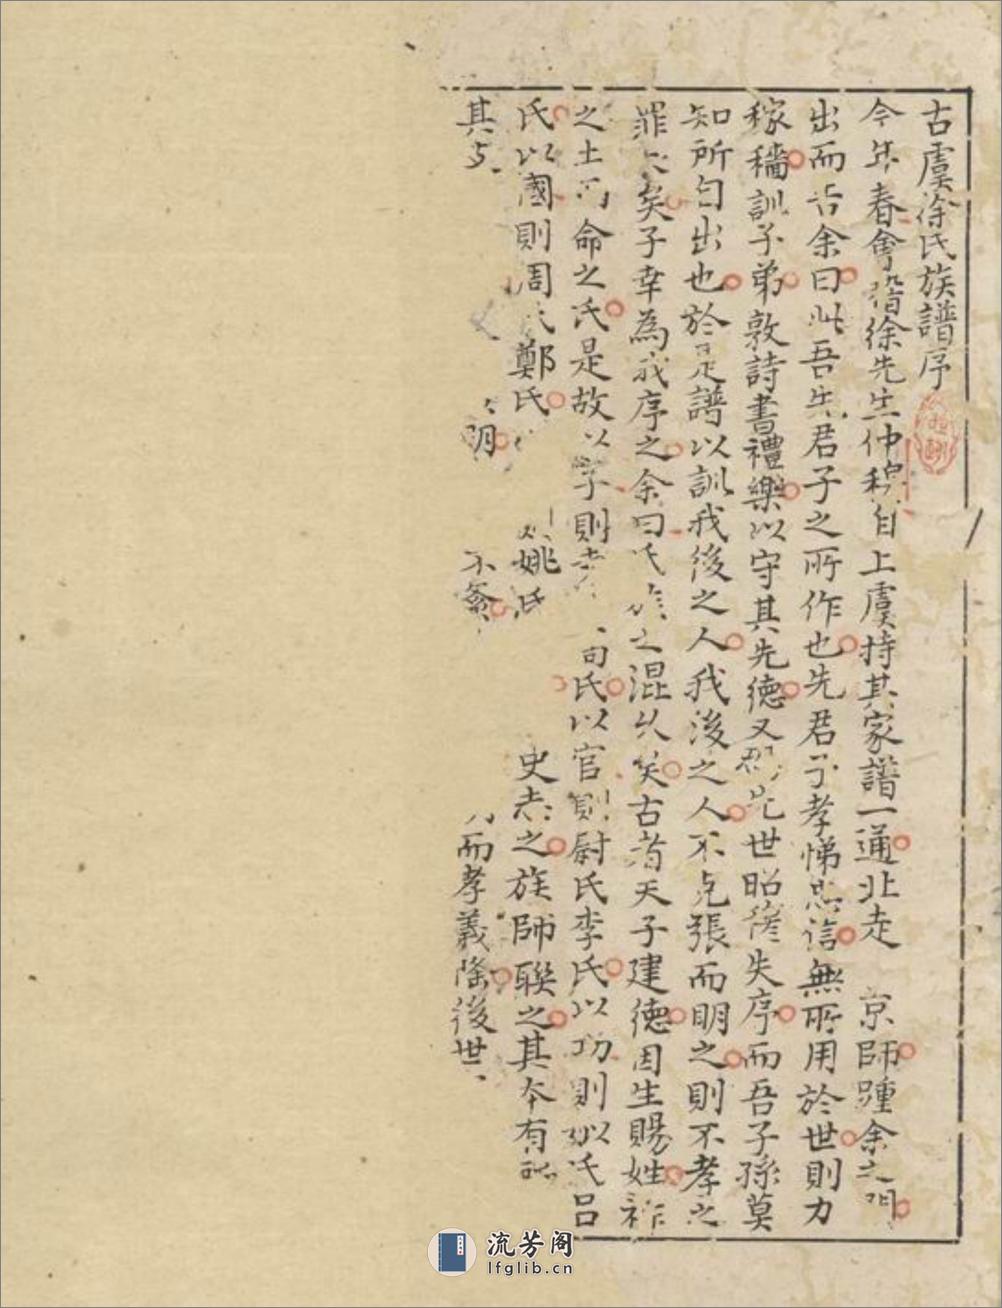 古虞徐氏族譜序
今年春會稽徐先生仲積自上虞持其家譜一通北走 京師踵余之門
出而告余曰此吾先君子之所作也先君子孝悌忠信無所用於世則力
稼穡訓子弟敦詩書禮樂以守其先德又懼先世昭穆失序而吾子孫莫
知所自出也於是譜以訓我後之人我後之人不克張而明之則不孝之
罪大矣子幸為我序之余曰氏族之混久矣古者天子建德因生賜姓祚
之土而命之氏是故以字則 氏以官則尉氏李氏以功則 氏呂
氏以國則周氏鄭氏 姚氏 史志之族師聯之其本有所
其 明 不 而孝義隆後世
流芳阁
lfglib.cn